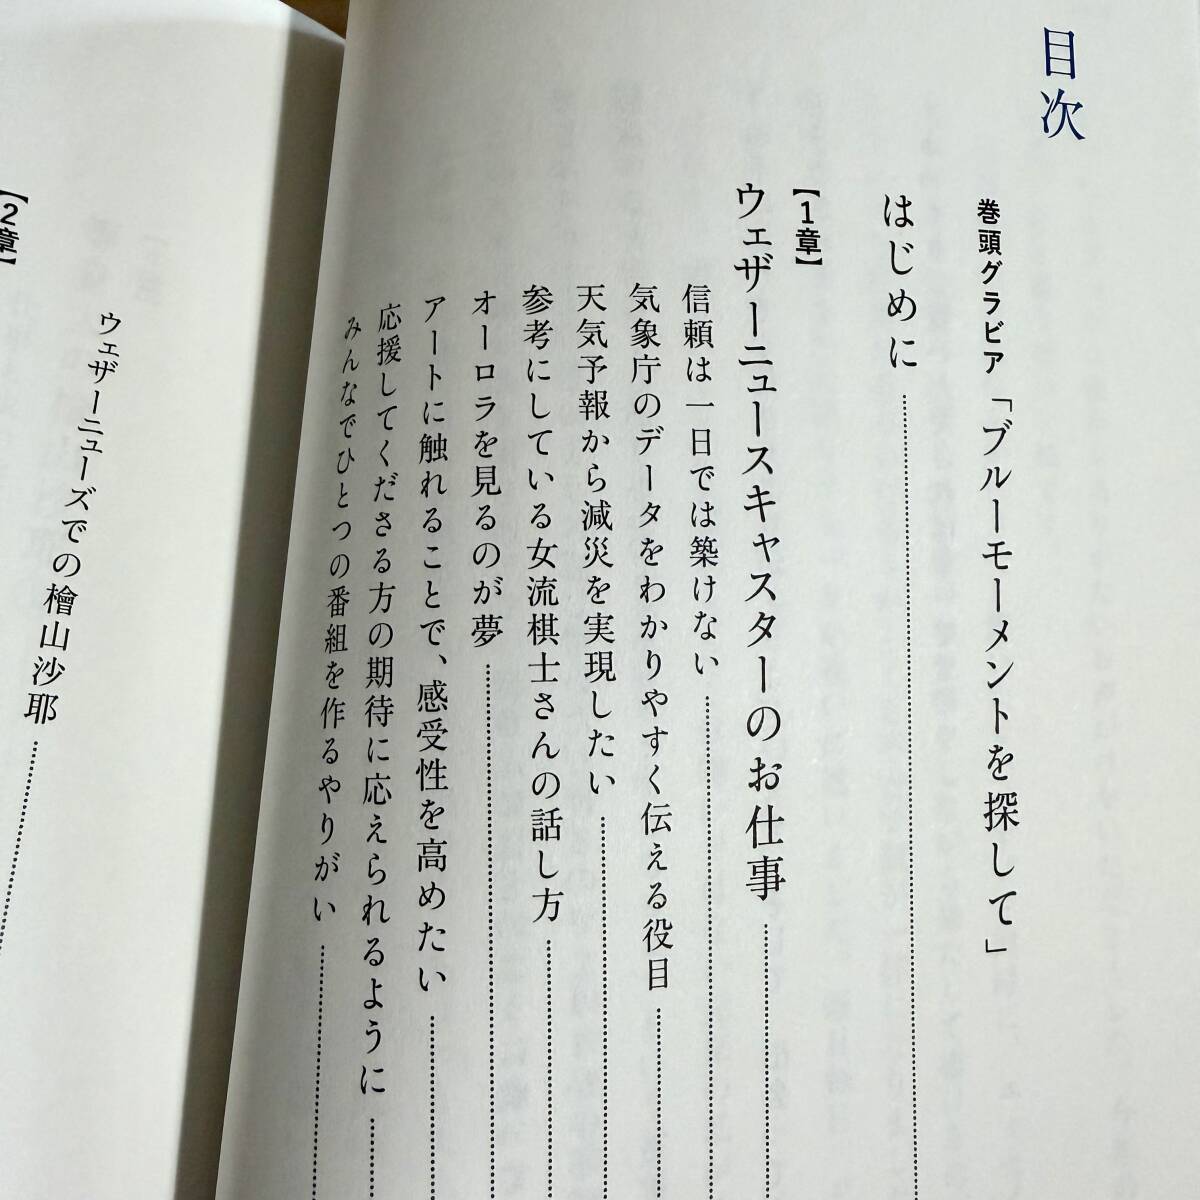 目次
巻頭グラビア「ブルーモーメントを探して」
はじめに
【1章】
ウェザーニュースキャスターのお仕事
信頼は一日では築けない
気象庁のデータをわかりやすく伝える役目
天気予報から減災を実現したい
参考にしている女流棋士さんの話し方
オーロラを見るのが夢
アートに触れることで、感受性を高めたい
応援してくださる方の期待に応えられるように
みんなでひとつの番組を作るやりがい
ウェザーニューズでの檜山沙耶
【2章】